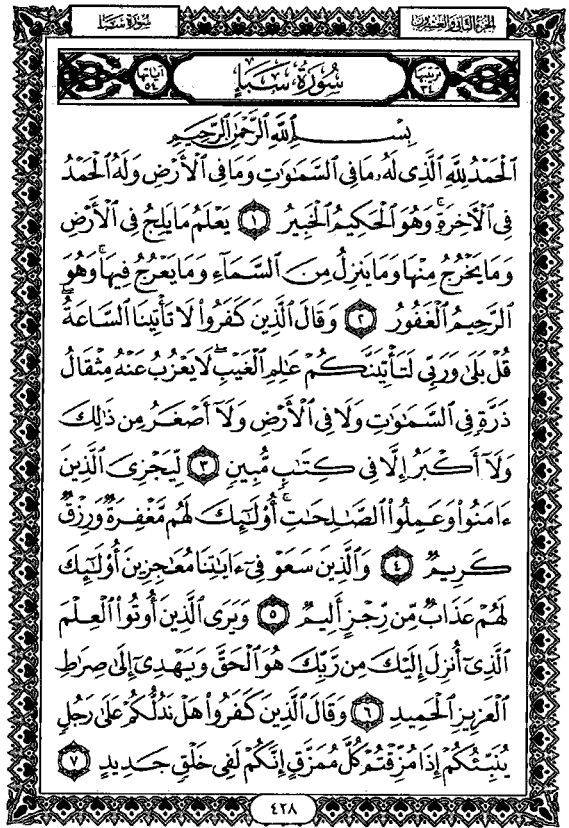 الجزء الثاني والعشرون
سُورَة سَبَإ
ترتيبها ٣٤
سُورَةُ سَبَإٍ
آياتها ٥٤
بِسْمِ اللَّهِ الرَّحْمَٰنِ الرَّحِيمِ
الْحَمْدُ لِلَّهِ الَّذِي لَهُ مَا فِي السَّمَٰوَٰتِ وَمَا فِي الْأَرْضِ وَلَهُ الْحَمْدُ
فِي الْآخِرَةِ ۚ وَهُوَ الْحَكِيمُ الْخَبِيرُ ١ يَعْلَمُ مَا يَلِجُ فِي الْأَرْضِ
وَمَا يَخْرُجُ مِنْهَا وَمَا يَنزِلُ مِنَ السَّمَآءِ وَمَا يَعْرُجُ فِيهَا ۚ وَهُوَ
الرَّحِيمُ الْغَفُورُ ٢ وَقَالَ الَّذِينَ كَفَرُوا۟ لَا تَأْتِينَا السَّاعَةُ ۖ
قُلْ بَلَىٰ وَرَبِّي لَتَأْتِيَنَّكُمْ عَٰلِمِ الْغَيْبِ ۖ لَا يَعْزُبُ عَنْهُ مِثْقَالُ
ذَرَّةٍ فِي السَّمَٰوَٰتِ وَلَا فِي الْأَرْضِ وَلَآ أَصْغَرُ مِن ذَٰلِكَ
وَلَآ أَكْبَرُ إِلَّا فِي كِتَٰبٍ مُّبِينٍ ٣ لِّيَجْزِيَ الَّذِينَ
ءَامَنُوا۟ وَعَمِلُوا۟ الصَّٰلِحَٰتِ ۚ أُو۟لَٰٓئِكَ لَهُم مَّغْفِرَةٌ وَرِزْقٌ
كَرِيمٌ ٤ وَالَّذِينَ سَعَوْ فِيٓ ءَايَٰتِنَا مُعَٰجِزِينَ أُو۟لَٰٓئِكَ
لَهُمْ عَذَابٌ مِّن رِّجْزٍ أَلِيمٌ ٥ وَيَرَى الَّذِينَ أُوتُوا۟ الْعِلْمَ
الَّذِيٓ أُنزِلَ إِلَيْكَ مِن رَّبِّكَ هُوَ الْحَقَّ وَيَهْدِيٓ إِلَىٰ صِرَٰطِ
الْعَزِيزِ الْحَمِيدِ ٦ وَقَالَ الَّذِينَ كَفَرُوا۟ هَلْ نَدُلُّكُمْ عَلَىٰ رَجُلٍ
يُنَبِّئُكُمْ إِذَا مُزِّقْتُمْ كُلَّ مُمَزَّقٍ إِنَّكُمْ لَفِي خَلْقٍ جَدِيدٍ ٧
٤٢٨